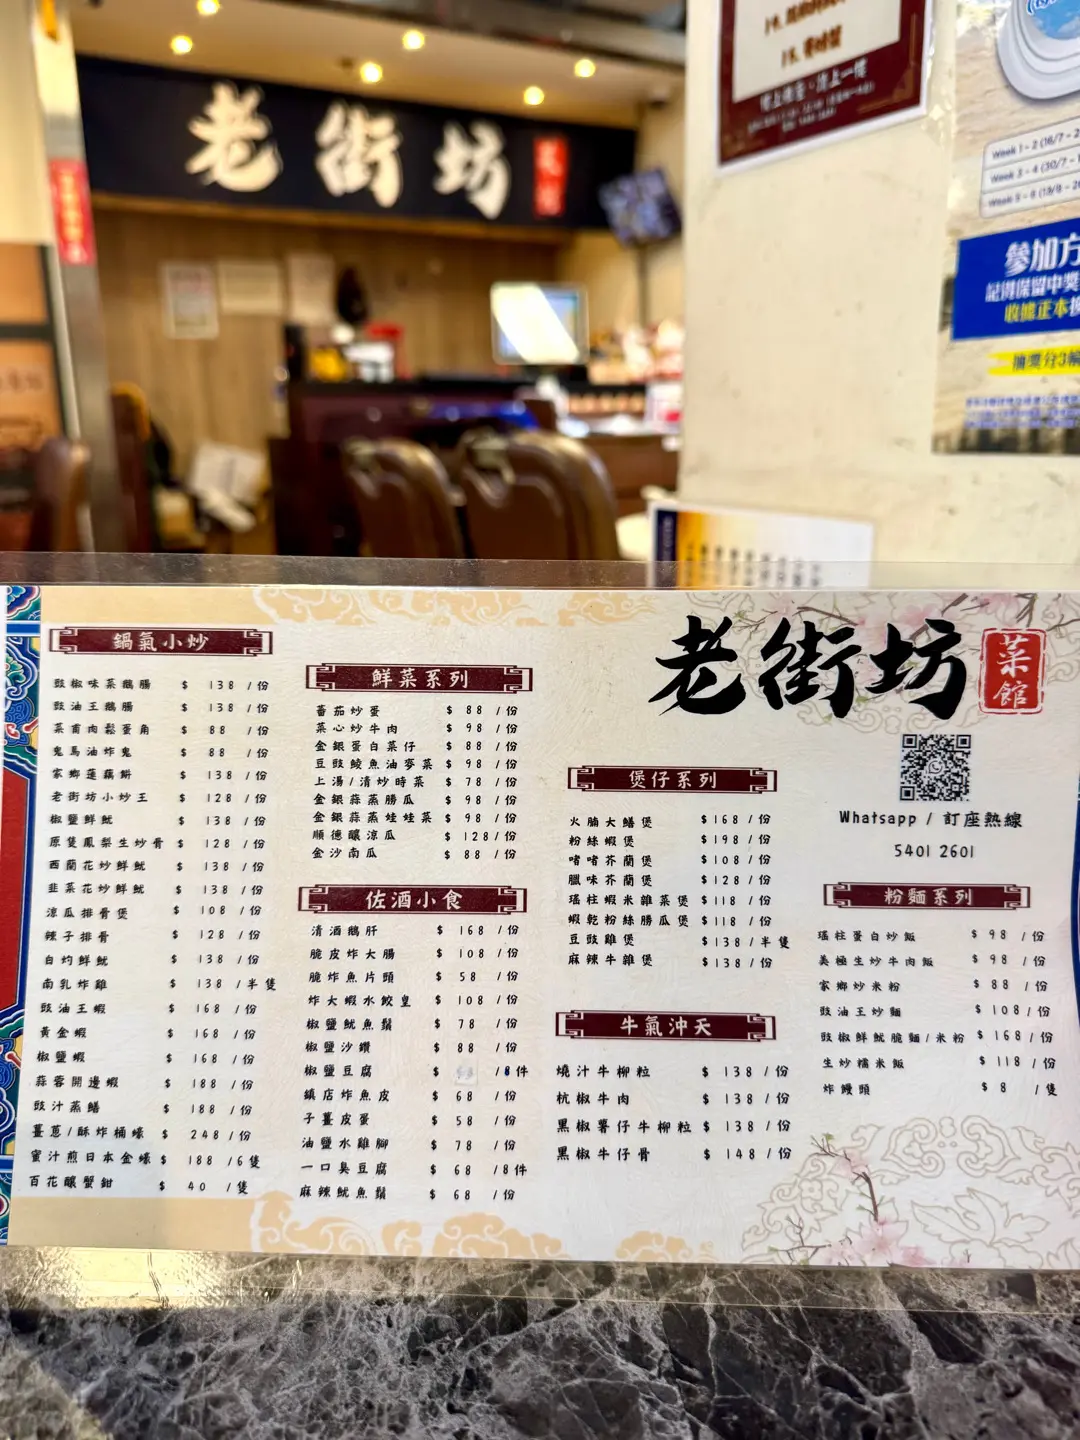 老街坊
菜館
參加方
記得保留中獎
收據正本換
抽獎分3輪
Week 1 - 2 (16/7 -
Week 3 - 4 (30/7 -
鍋氣小炒
豉椒味菜鵝腸 $ 138 /份
豉油王鵝腸 $ 138 /份
菜甫肉鬆蛋角 $ 88 /份
鬼馬油炸鬼 $ 88 /份
家鄉蓮藕餅 $ 138 /份
老街坊小炒王 $ 128 /份
椒鹽鮮魷 $ 138 /份
原隻鳳梨生炒骨 $ 128 /份
西蘭花炒鮮魷 $ 138 /份
韭菜花炒鮮魷 $ 138 /份
涼瓜排骨煲 $ 108 /份
辣子排骨 $ 128 /份
白灼鮮魷 $ 138 /份
南乳炸雞 $ 138 /半隻
豉油王蝦 $ 168 /份
黃金蝦 $ 168 /份
椒鹽蝦 $ 168 /份
蒜蓉開邊蝦 $ 188 /份
豉汁蒸鱔 $ 188 /份
薑蔥/酥炸桶蠔 $ 248 /份
蜜汁煎日本金蠔 $ 188 /6隻
百花釀蟹鉗 $ 40 /隻
鮮菜系列
蕃茄炒蛋 $ 88 /份
菜心炒牛肉 $ 98 /份
金銀蛋白菜仔 $ 88 /份
豆豉鯪魚油麥菜 $ 98 /份
上湯/清炒時菜 $ 78 /份
金銀蒜蒸勝瓜 $ 98 /份
金銀蒜蒸娃娃菜 $ 98 /份
順德釀涼瓜 $ 128 /份
金沙南瓜 $ 88 /份
佐酒小食
清酒鵝肝 $ 168 /份
脆皮炸大腸 $ 108 /份
脆炸魚片頭 $ 58 /份
炸大蝦水餃皇 $ 108 /份
椒鹽魷魚鬚 $ 78 /份
椒鹽沙鑽 $ 88 /份
椒鹽豆腐 $ /8件
鎮店炸魚皮 $ 68 /份
子薑皮蛋 $ 58 /份
油鹽水雞腳 $ 78 /份
一口臭豆腐 $ 68 /8件
麻辣魷魚鬚 $ 68 /份
老街坊
菜館
Whatsapp / 訂座熱線
5401 2601
煲仔系列
火腩大鱔煲 $168 /份
粉絲蝦煲 $198 /份
啫啫芥蘭煲 $108 /份
臘味芥蘭煲 $128 /份
瑤柱蝦米雜菜煲 $118 /份
蝦乾粉絲勝瓜煲 $118 /份
豆豉雞煲 $138 /半隻
麻辣牛雜煲 $138 /份
牛氣沖天
燒汁牛柳粒 $ 138 /份
杭椒牛肉 $ 138 /份
黑椒薯仔牛柳粒 $ 138 /份
黑椒牛仔骨 $ 148 /份
粉麵系列
瑤柱蛋白炒飯 $ 98 /份
美極生炒牛肉飯 $ 98 /份
家鄉炒米粉 $ 88 /份
豉油王炒麵 $ 108 /份
豉椒鮮魷脆麵/米粉 $ 168 /份
生炒糯米飯 $ 118 /份
炸饅頭 $ 8 /隻